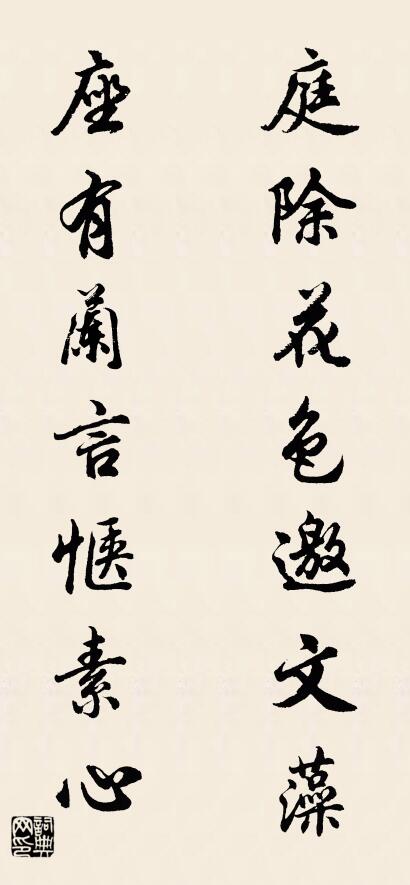 庭除花色邀文藻
座有蘭言惬素心
詞典网印